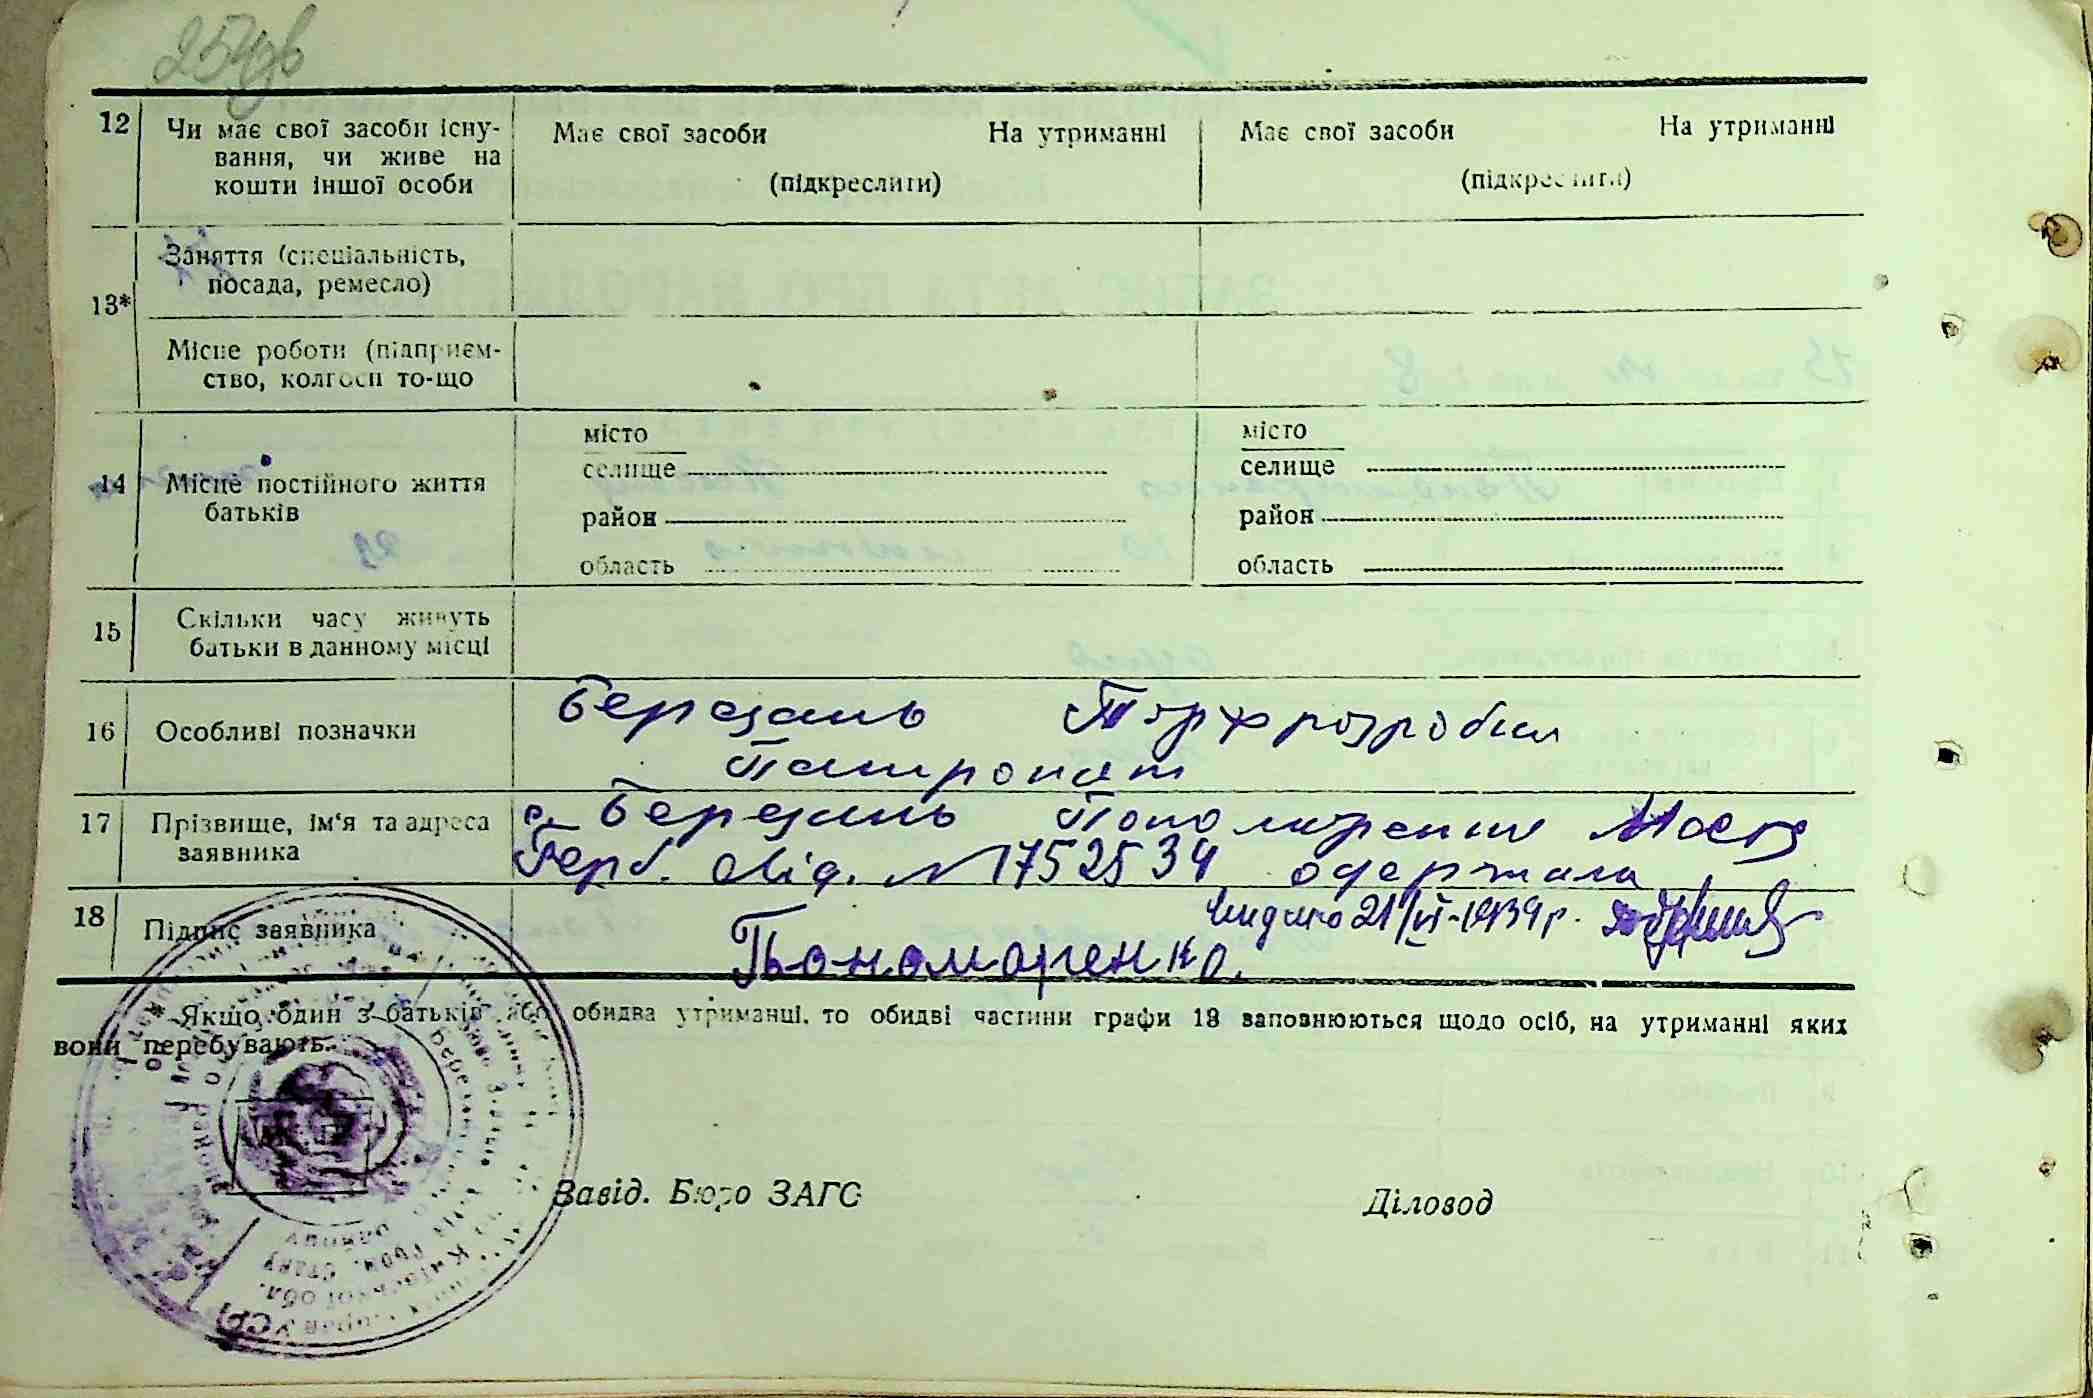 254зв
12 Чи має свої засоби існу- Має свої засоби На утриманні Має свої засоби На утриманні
вання, чи живе на
кошти іншої особи (підкреслити) (підкреслити)
Заняття (спеціальність,
посада, ремесло)
13*
Місце роботи (підприєм-
ство, колгосп то-що
місто місто
14 Місце постійного життя селище селище
батьків район район
область область
15 Скільки часу живуть
батьки в данному місці
16 Особливі позначки Березань Торфрозробки
Патронат
17 Прізвище, ім'я та адреса с. Березань Пономаренко
заявника Герб. свід. № 752534 одержала
18 Підпис заявника Видано 21/VI-1939 р.
Пономоренко.
Якщо один з батьків або обидва утриманці, то обидві частини графи 13 заповнюються щодо осіб, на утриманні яких
вони перебувають.
Завід. Бюро ЗАГС Діловод